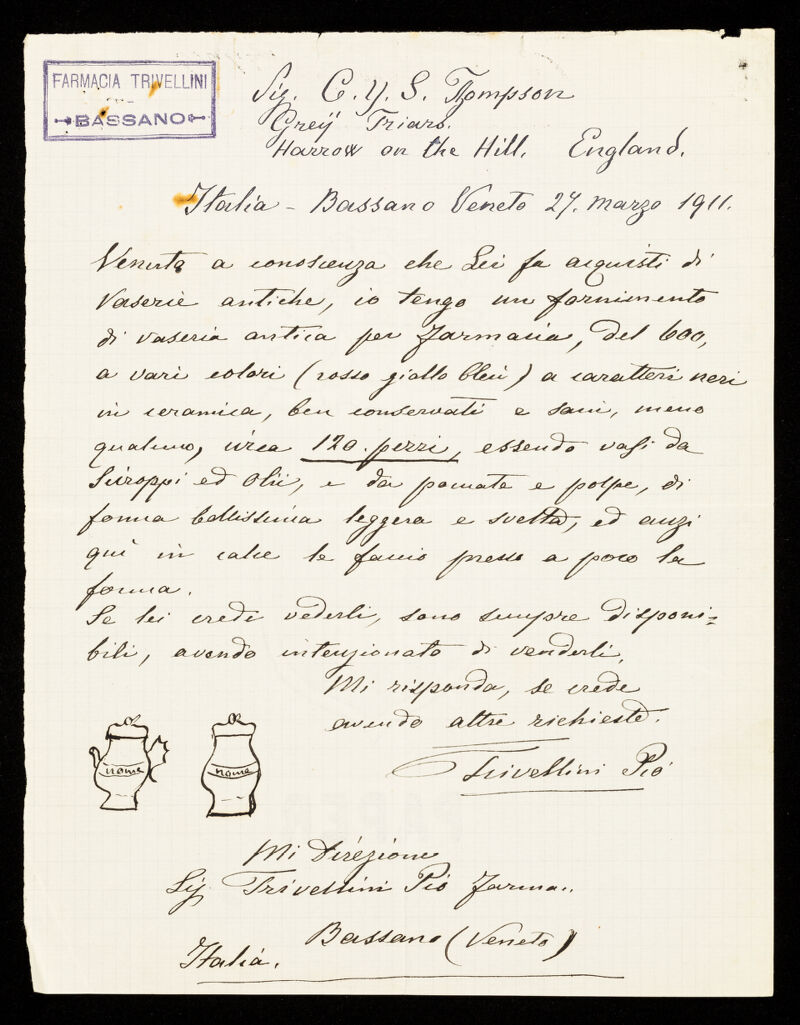 FARMACIA TRIVELLINI
BASSANO
Sig. C. Y. S. Thompson
Greÿ Friars.
Harrow on the Hill. England.
Italia - Bassano Veneto 27. marzo 1911.
Venuto a conoscienza che Lei fa acquisti di
Vaserie antiche, io tengo un fornimento
di vaseria antica per farmacia, del 600,
a vari colori (rosso giallo bleù) a caratteri neri
in ceramica, ben conservati e sani, meno
qualcuno, circa 120. pezzi, essendo vasi da
Siroppi ed Olii, e da pomate e polpe, di
forma bellissima leggera e svelta, ed anzi
quì in calce le faccio presso a poco la
forma.
Se lei crede vederli, sono sempre disponi=
bili, avendo intenzionato di venderli,
Mi risponda, se crede
avendo altre richieste.
Trivellini Pió
nome
nome
Mi Direzione
Sig Trivellini Pió Farma..
Bassano (Veneto)
Italia.